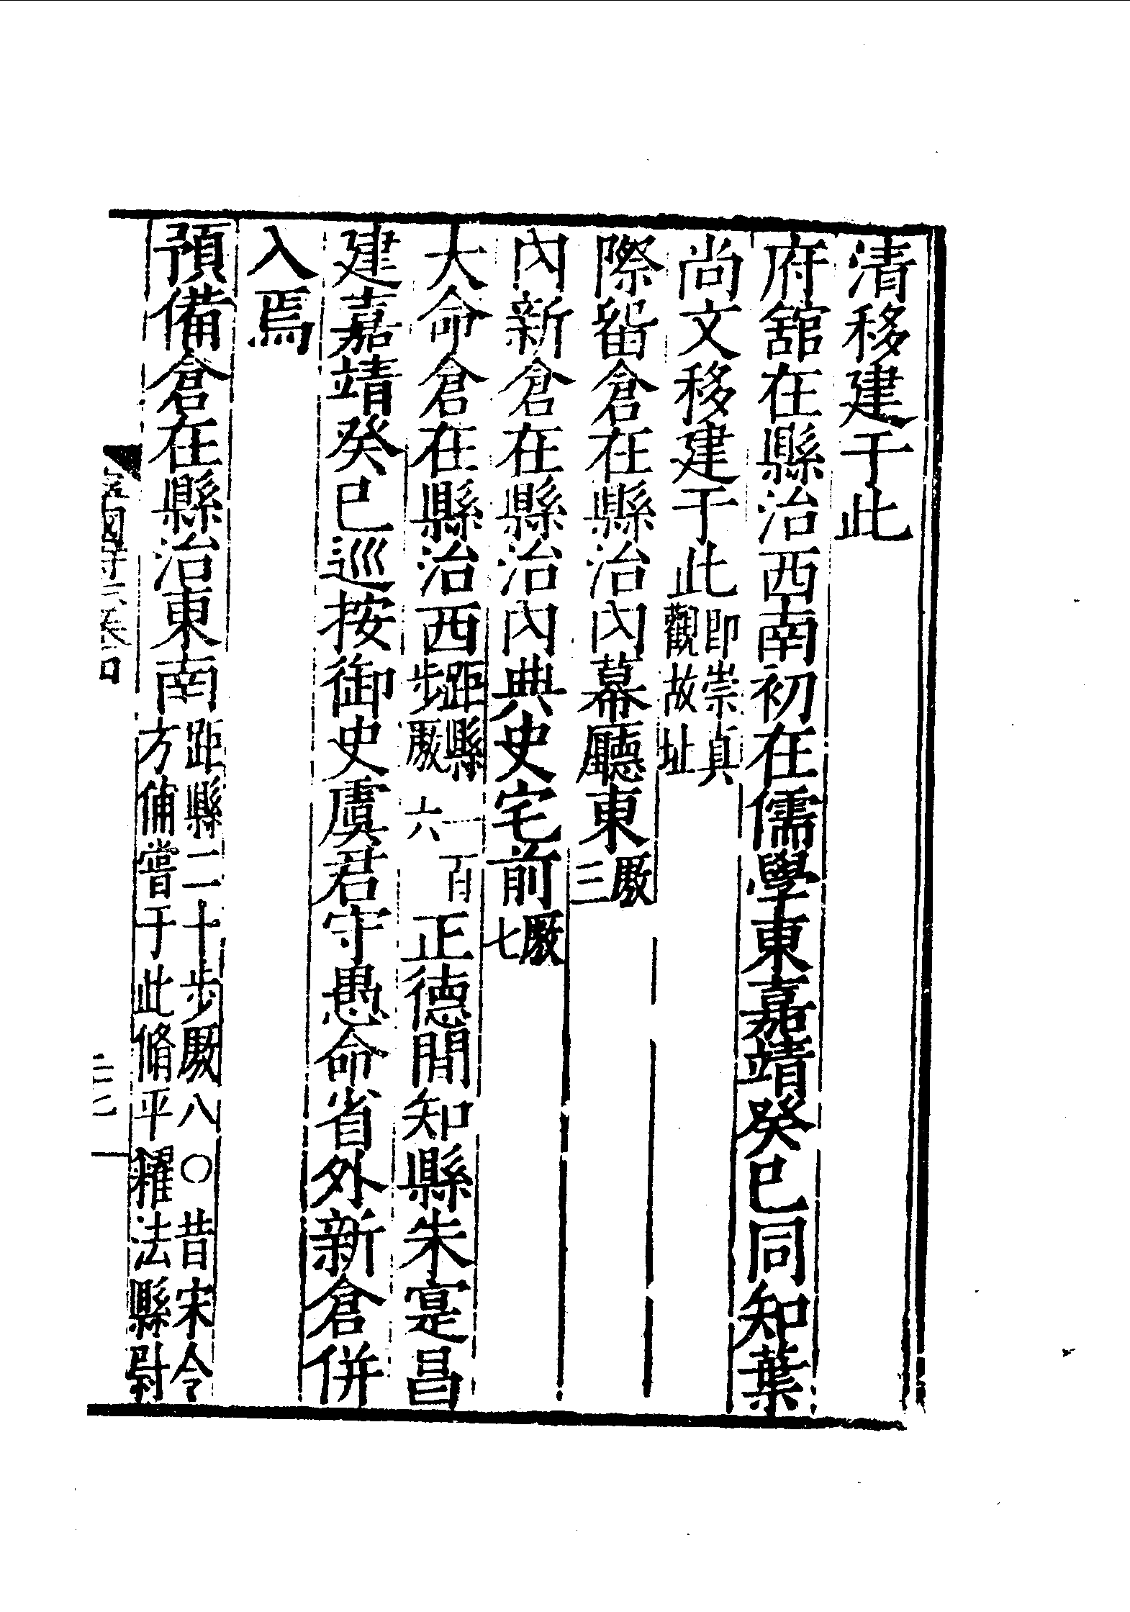 清移建于此
府舘在縣治西南初在儒學東嘉靖癸巳同知葉
尚文移建于此即崇真觀故址
際留倉在縣治內幕廳東厫三
內新倉在縣治內典史宅前厫七
大命倉在縣治西距縣一百步厫六正德間知縣朱寔昌
建嘉靖癸巳巡按御史虞君守愚命省外新倉併
入焉
預備倉在縣治東南距縣二十步厫八〇昔宋令方備嘗于此脩平糴法縣尉
寧國府志卷四